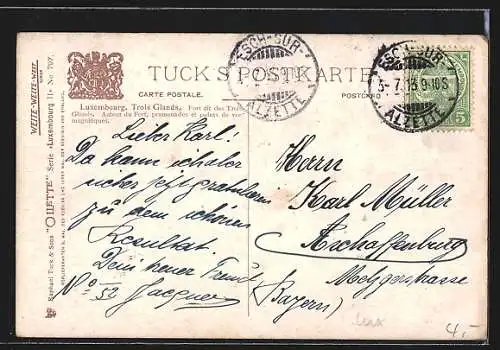 TUCK'S POSTKARTE
CARTE POSTALE. POSTCARD
Luxembourg, Trois Glands. Fort dit des Trois
Glands. Autour du Fort, promenades et palais de vue
magnifiques.
WEITE-WEITE-WELT
Raphael Tuck & Sons "OILETTE" Serie «Luxembourg II» No 797.
ESCH-SUR-
ALZETTE
ESCH-SUR-
3-7.13 9-10S
ALZETTE
5
Lieber Karl!
Da kann ich aber
sicher jetzt gratulieren
zu dem schönen
Resultat.
Dein treuer Freund
No 52 Jacques
Herrn
Karl Müller
Aschaffenburg
Metzgerstrasse
(Bayern)
Lux
4.-